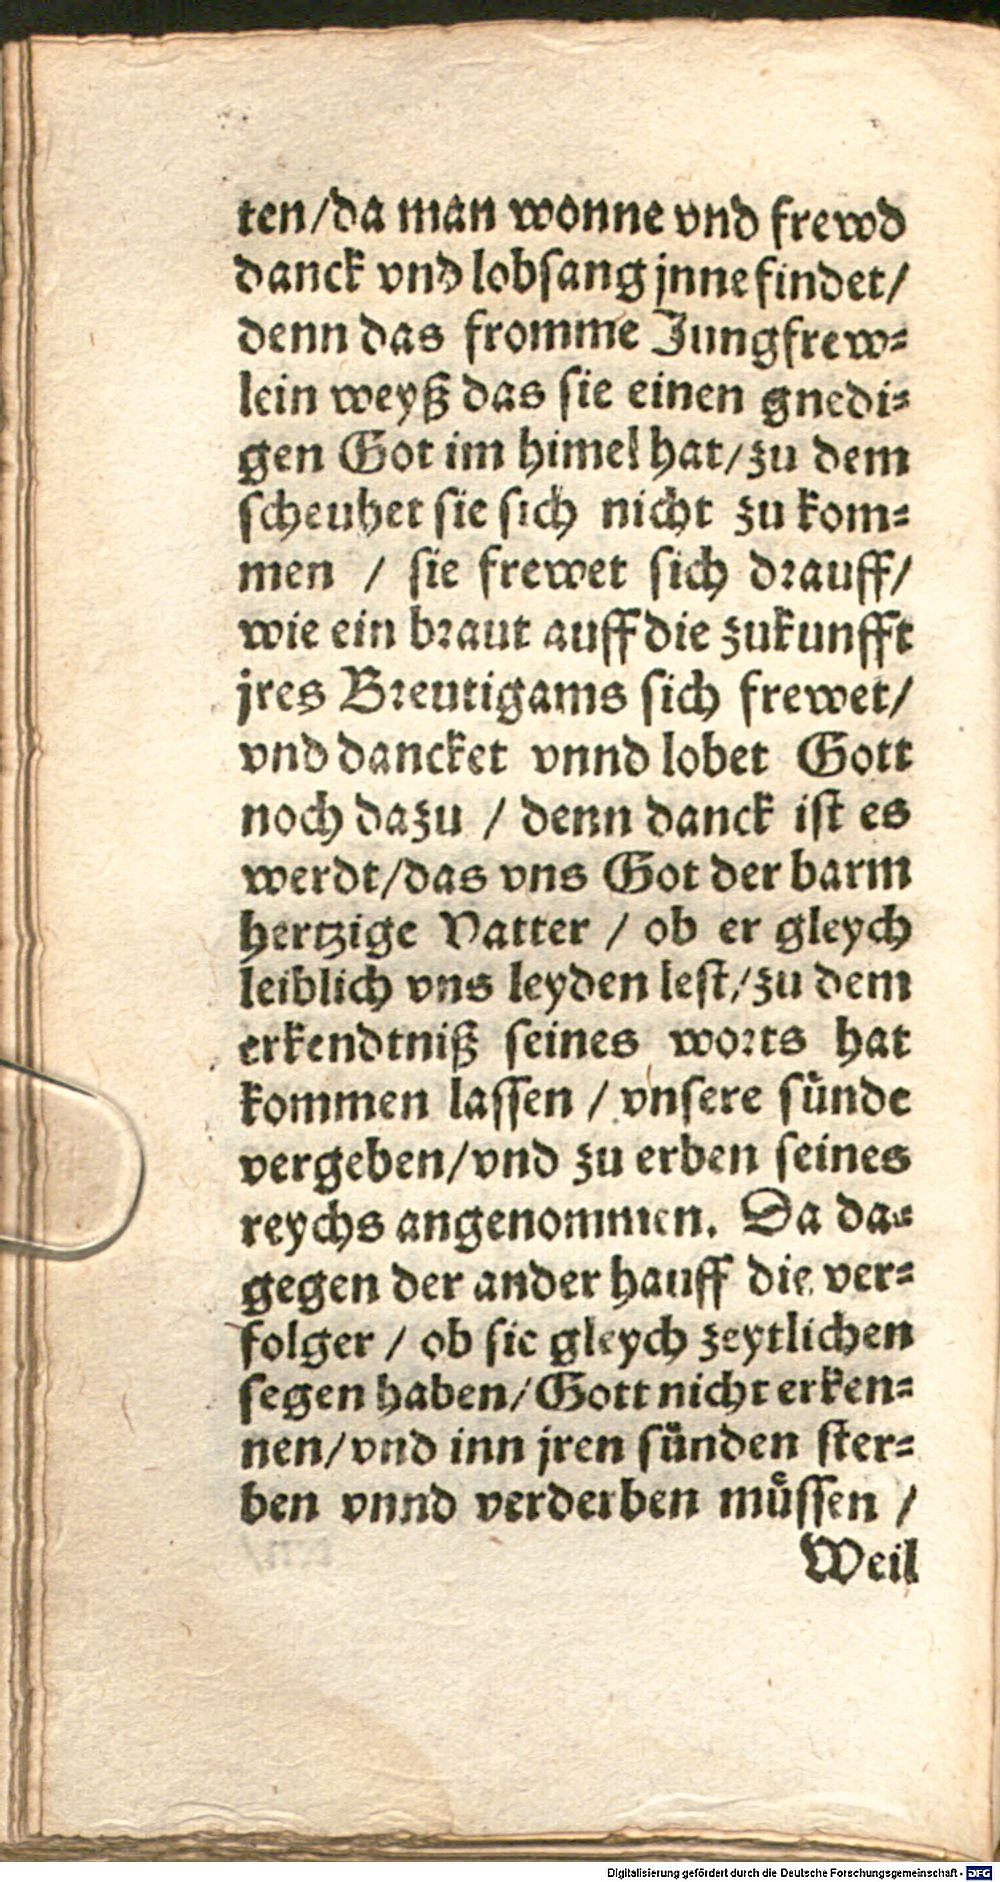 ten/da man wonne vnd frewd
danck vnd lobsang jnne findet/
denn das fromme Jungfrew-
lein weyß das sie einen gnedi-
gen Got im himel hat/zu dem
scheuhet sie sich nicht zu kom-
men / sie frewet sich drauff/
wie ein braut auff die zukunfft
jres Breutigams sich frewet/
vnd dancket vnnd lobet Gott
noch dazu / denn danck ist es
werdt/das vns Got der barm
hertzige Vatter / ob er gleych
leiblich vns leyden lest/zu dem
erkendtniß seines worts hat
kommen lassen / vnsere sünde
vergeben/vnd zu erben seines
reychs angenommen. Da da-
gegen der ander hauff die ver-
folger / ob sie gleych zeytlichen
segen haben/Gott nicht erken-
nen/vnd inn jren sünden ster-
ben vnnd verderben müssen /
Weil
Digitalisierung gefördert durch die Deutsche Forschungsgemeinschaft - DFG